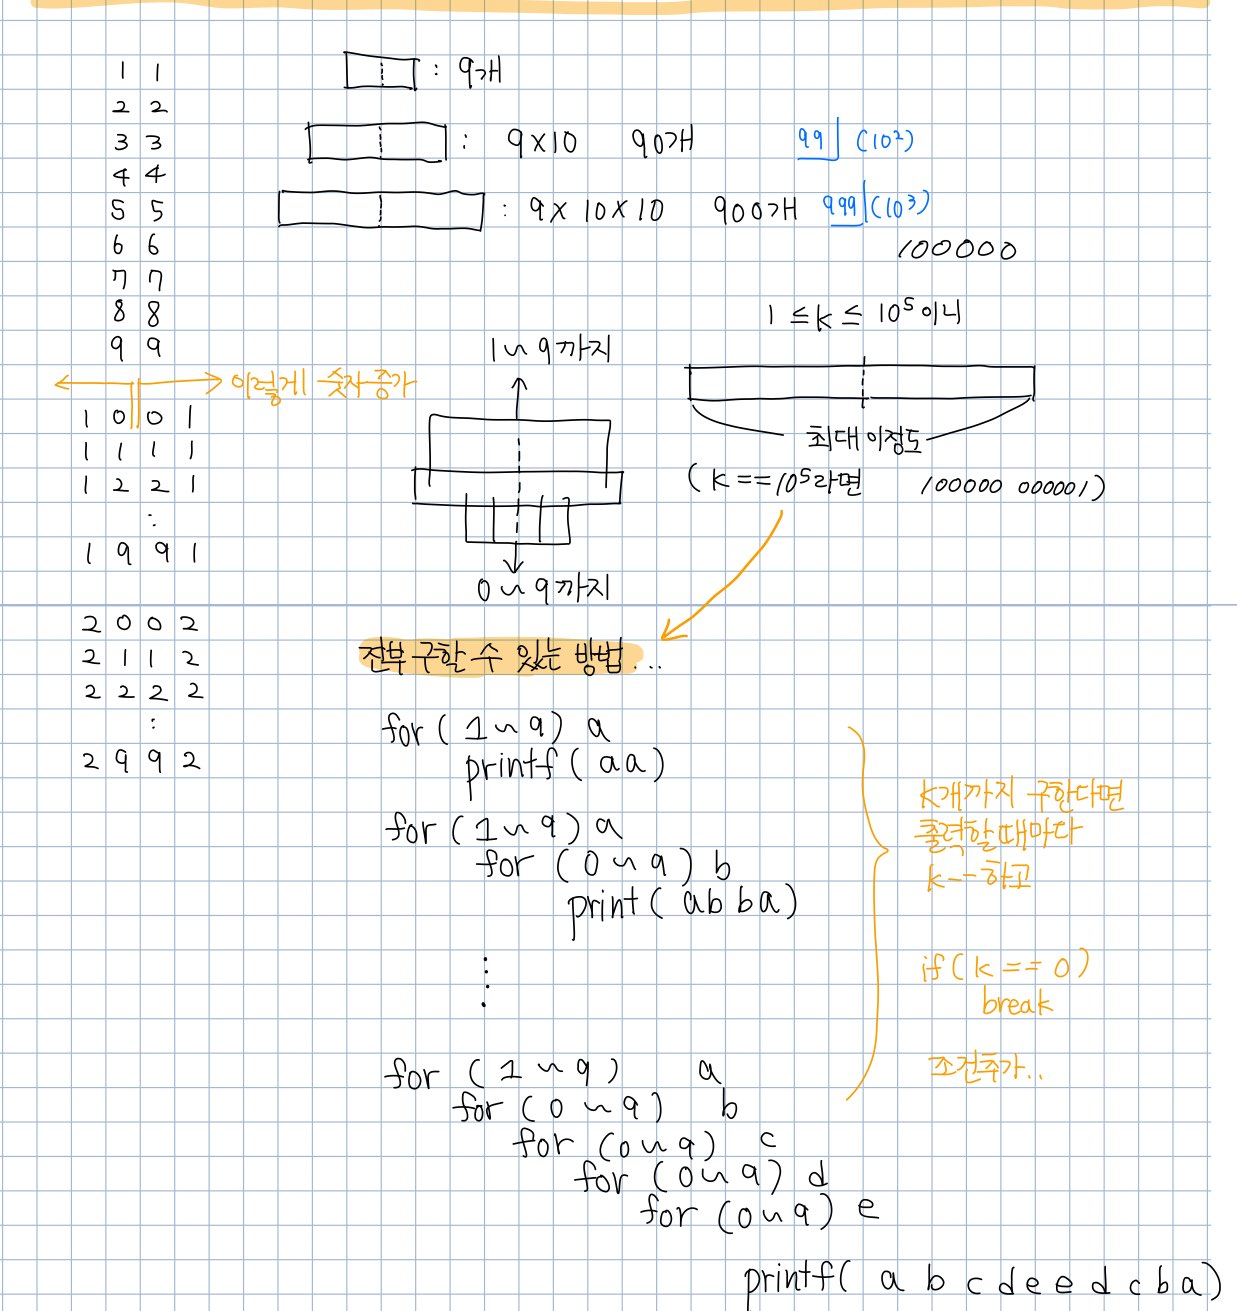 1 1
2 2
3 3
4 4
5 5
6 6
7 7
8 8
9 9
이렇게 숫자 증가
1 0 0 1
1 1 1 1
1 2 2 1
:
1 9 9 1
2 0 0 2
2 1 1 2
2 2 2 2
:
2 9 9 2
: 9개
: 9x10 90개 99 (10²)
: 9x 10x10 900개 999 (10³)
100000
1 ≤ k ≤ 10⁵이니
최대 이정도
(k==10⁵라면 100000 000001)
1~9까지
0~9까지
전부 구할 수 있는 방법...
for( 1~9) a
printf( aa)
for (1~9) a
for (0~9) b
print( ab ba)
⋮
for (1~9) a
for (0~9) b
for (0~9) c
for (0~9) d
for (0~9) e
printf( a b c d e e d c b a)
k개까지 구한다면
출력할때마다
k--하고
if( k == 0)
break
조건추가..